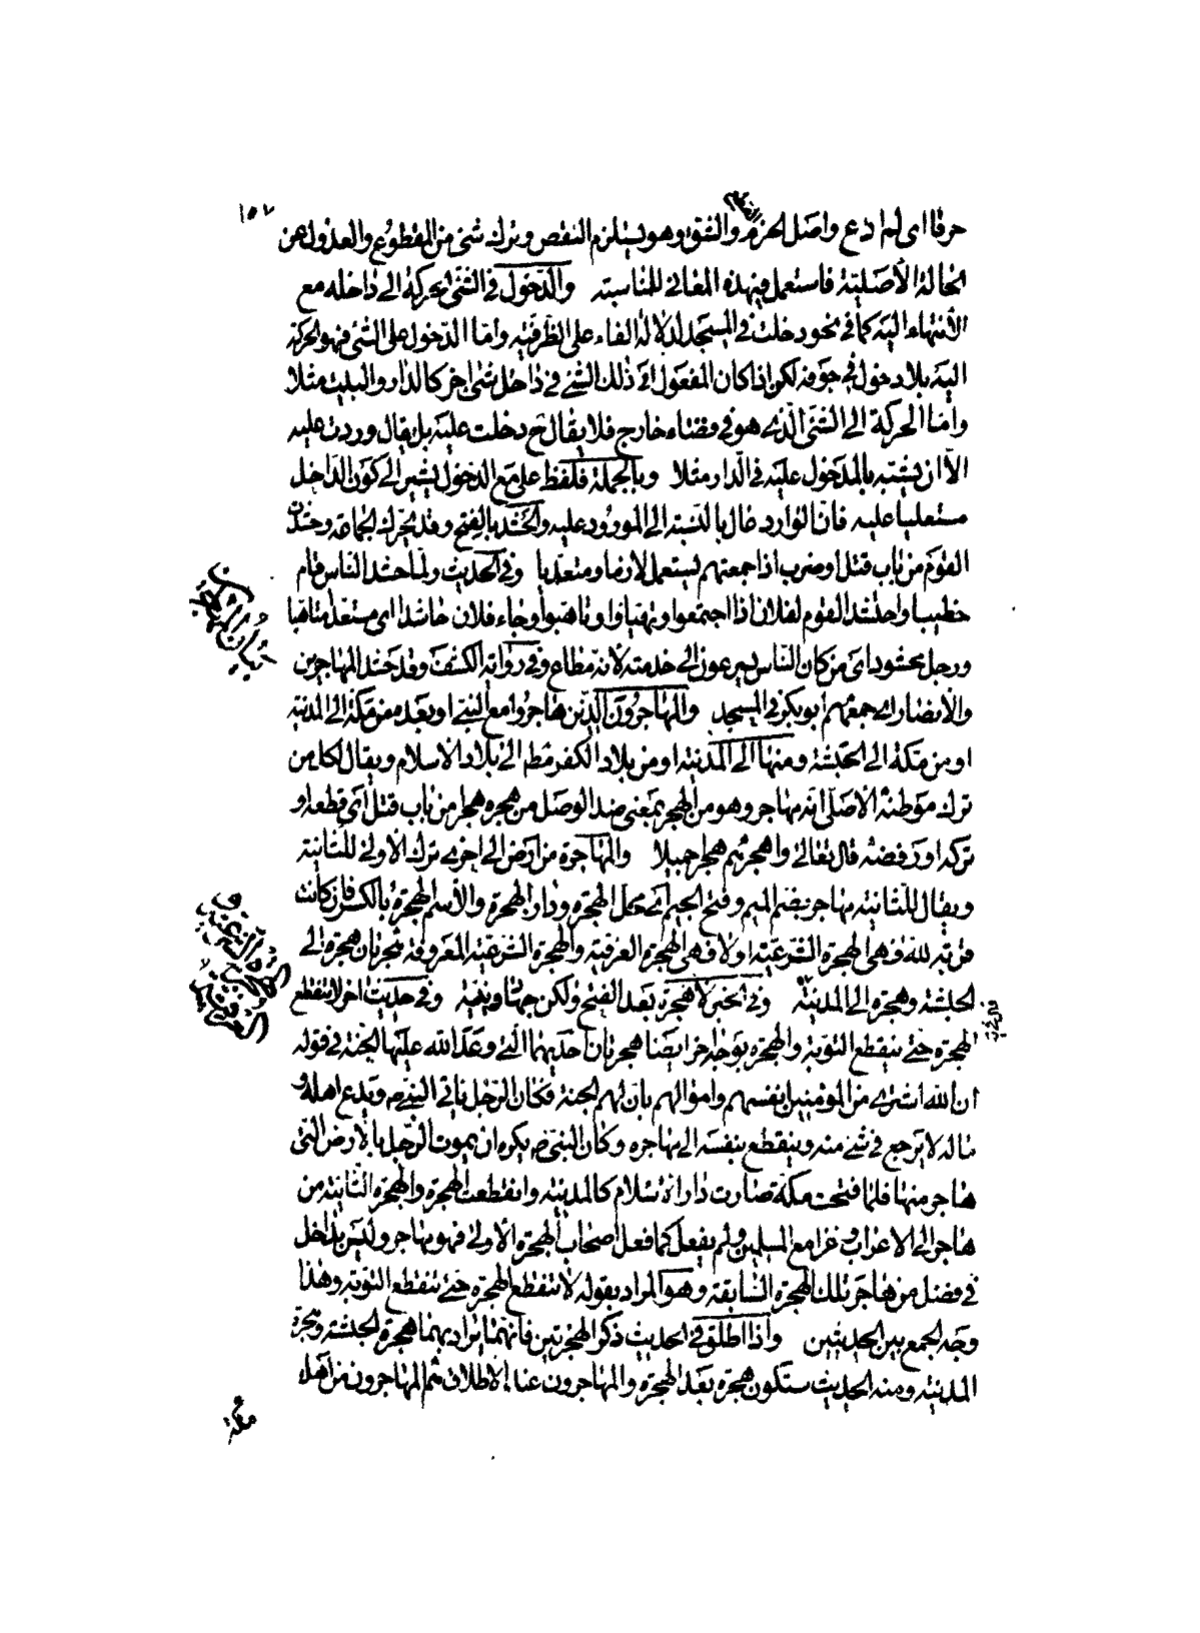 ١٥٧
حرفا اى لم ادع واصل الخرم والشق وهو يستلزم النقص وترك شئ من المقطوع والعدول عن
الحالة الأصلية فاستعمل فى هذه المعانى للمناسبة والدخول فى الشئ الحركة الى داخله مع
الأنتهاء اليه كما فى نحو دخلت فى المسجد لدلالة الفاء على الظرفية وامّا الدخول على الشئ فهو الحركة
اليه بلا دخول فى جوفه لكن اذا كان المفعول فى ذلك الشئ فى داخل شئ اخر كالدار والبيت مثلا
وامّا الحركة الى الشئ الّذى هو فى فضاء خارج فلا يقال ح دخلت عليه بل يقال وردت عليه
الّا ان يشبّه بالمدخول عليه فى الدار مثلا وبالجملة فلفظ على مع الدخول يشير الى كون الداخل
مستعليا عليه فانّ الوارد عال بالنسبة الى المورود عليه والحشد بالفتح وقد يحرّك الجماعة وحشدت
القوم من باب قتل وضرب اذا جمعتهم يستعمل لازما ومتعديا وفى الحديث ولمّا حشد الناس قام
خطيبا واحتشد القوم لفلان اذا اجتمعوا وتهيّاوا وتاهّبوا وجاء فلان حاشدا اى مستعدا متاهّبا
ورجل محشود اى من كان الناس يسرعون الى خدمته لانه مطاع وفى رواية الكشف وقد حشد المهاجرين
والأنصار اى جمعهم ابو بكر فى المسجد والمهاجرون الّذين هاجروا مع النبى او بعده من مكة الى المدينة
او من مكة الى الحبشة ومنها الى المدينة او من بلاد الكفر مطم الى بلاد الاسلام ويقال لكل من
ترك موطنه الأصلى انه مهاجر وهو من الهجر بمعنى ضد الوصل من هجره هجرا من باب قتل اى قطعه او
تركه او رفضه قال تعالى واهجرهم هجرا جميلا والمهاجرة من ارض الى اخرى ترك الأولى للثانية
ويقال للثانية مهاجر بضم الميم وفتح الجيم اى محل الهجرة ودار الهجرة والأسم الهجرة بالكسر فان كانت
قربة لله فهى الهجرة الشرعية اولا فهى الهجرة العرفية والهجرة الشرعية المعروفة هجرتان هجرة الى
الحبشة وهجرة الى المدينة وفى الخبر لا هجرة بعد الفتح ولكن جهاد ونية وفى حديث اخر لا تنقطع
الهجرة حتى تنقطع التوبة والهجرة بوجه اخر ايضا هجرتان احديهما الّتى وعد الله عليها الجنة فى قوله
ان الله اشترى من المؤمنين انفسهم واموالهم بان لهم الجنة فكان الرجل ياتى النبى ص ويدع اهله و
ماله لا يرجع فى شئ منه وينقطع بنفسه الى مهاجره وكان النبى ص يكره ان يموت الرجل بالأرض الّتى
هاجر منها فلمّا فتحت مكة صارت دار الاسلام كالمدينة وانقطعت الهجرة والهجرة الثانية من
هاجر الى الاعراب وغزا مع المسلمين ولم يفعل كما فعل اصحاب الهجرة الأولى فهو مهاجر وليس بداخل
فى فضل من هاجر تلك الهجرة السابقة وهو المراد بقوله لا تنقطع الهجرة حتى تنقطع التوبة وهذا
وجه الجمع بين الحديثين واذا اطلق فى الحديث ذكر الهجرتين فانهما يراد بهما هجرة الحبشة وهجرة
المدينة ومنه الحديث ستكون هجرة بعد الهجرة والمهاجرون عند الاطلاق هم المهاجرون من اهل
مكة